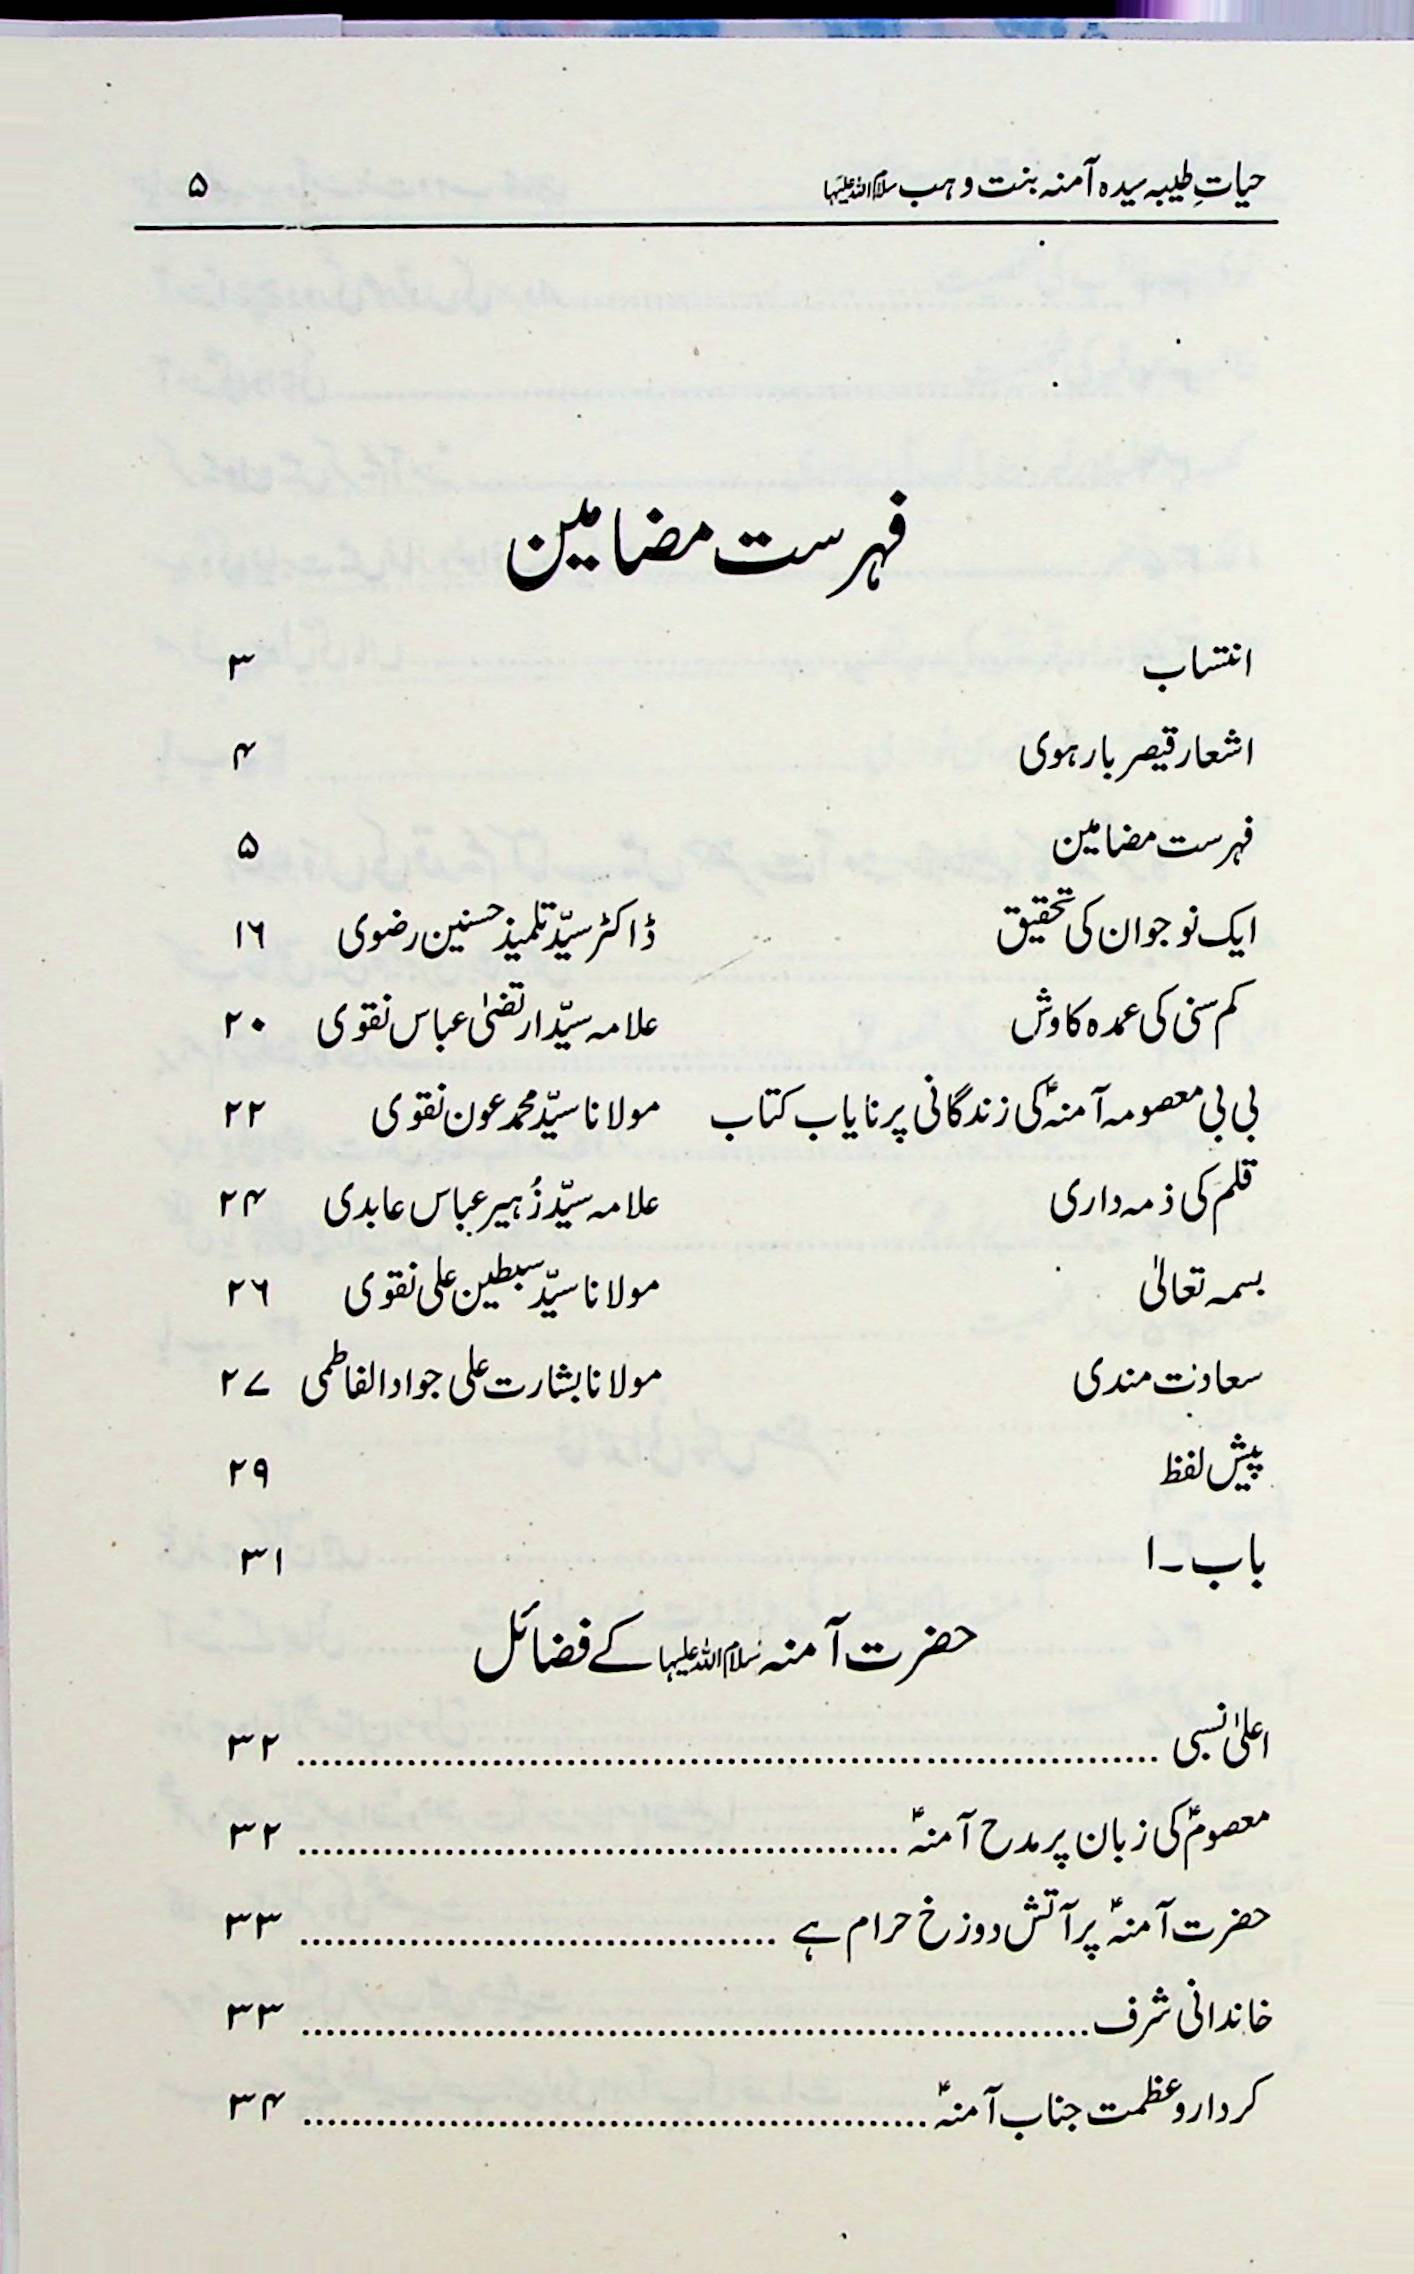 حیاتِ طیبہ سیدہ آمنہ بنت وہب سلام اللہ علیہا ۵
فہرست مضامین
انتساب ۳
اشعار قیصر بارہوی ۴
فہرست مضامین ۵
ایک نوجوان کی تحقیق ڈاکٹر سیّد تلمیذ حسنین رضوی ۱۶
کم سنی کی عمدہ کاوش علامہ سیّد ارتضیٰ عباس نقوی ۲۰
بی بی معصومہ آمنہؑ کی زندگانی پر نایاب کتاب مولانا سیّد محمد عون نقوی ۲۲
قلم کی ذمہ داری علامہ سیّد زُہیر عباس عابدی ۲۴
بسمہ تعالیٰ مولانا سیّد سبطین علی نقوی ۲۶
سعادت مندی مولانا بشارت علی جواد الفاطمی ۲۷
پیش لفظ ۲۹
باب ۔۱ ۳۱
حضرت آمنہ سلام اللہ علیہا کے فضائل
اعلیٰ نسبی ........ ۳۲
معصومؑ کی زبان پر مدح آمنہؑ ........ ۳۲
حضرت آمنہؑ پر آتش دوزخ حرام ہے ........ ۳۳
خاندانی شرف ........ ۳۳
کردار و عظمت جناب آمنہؑ ........ ۳۴